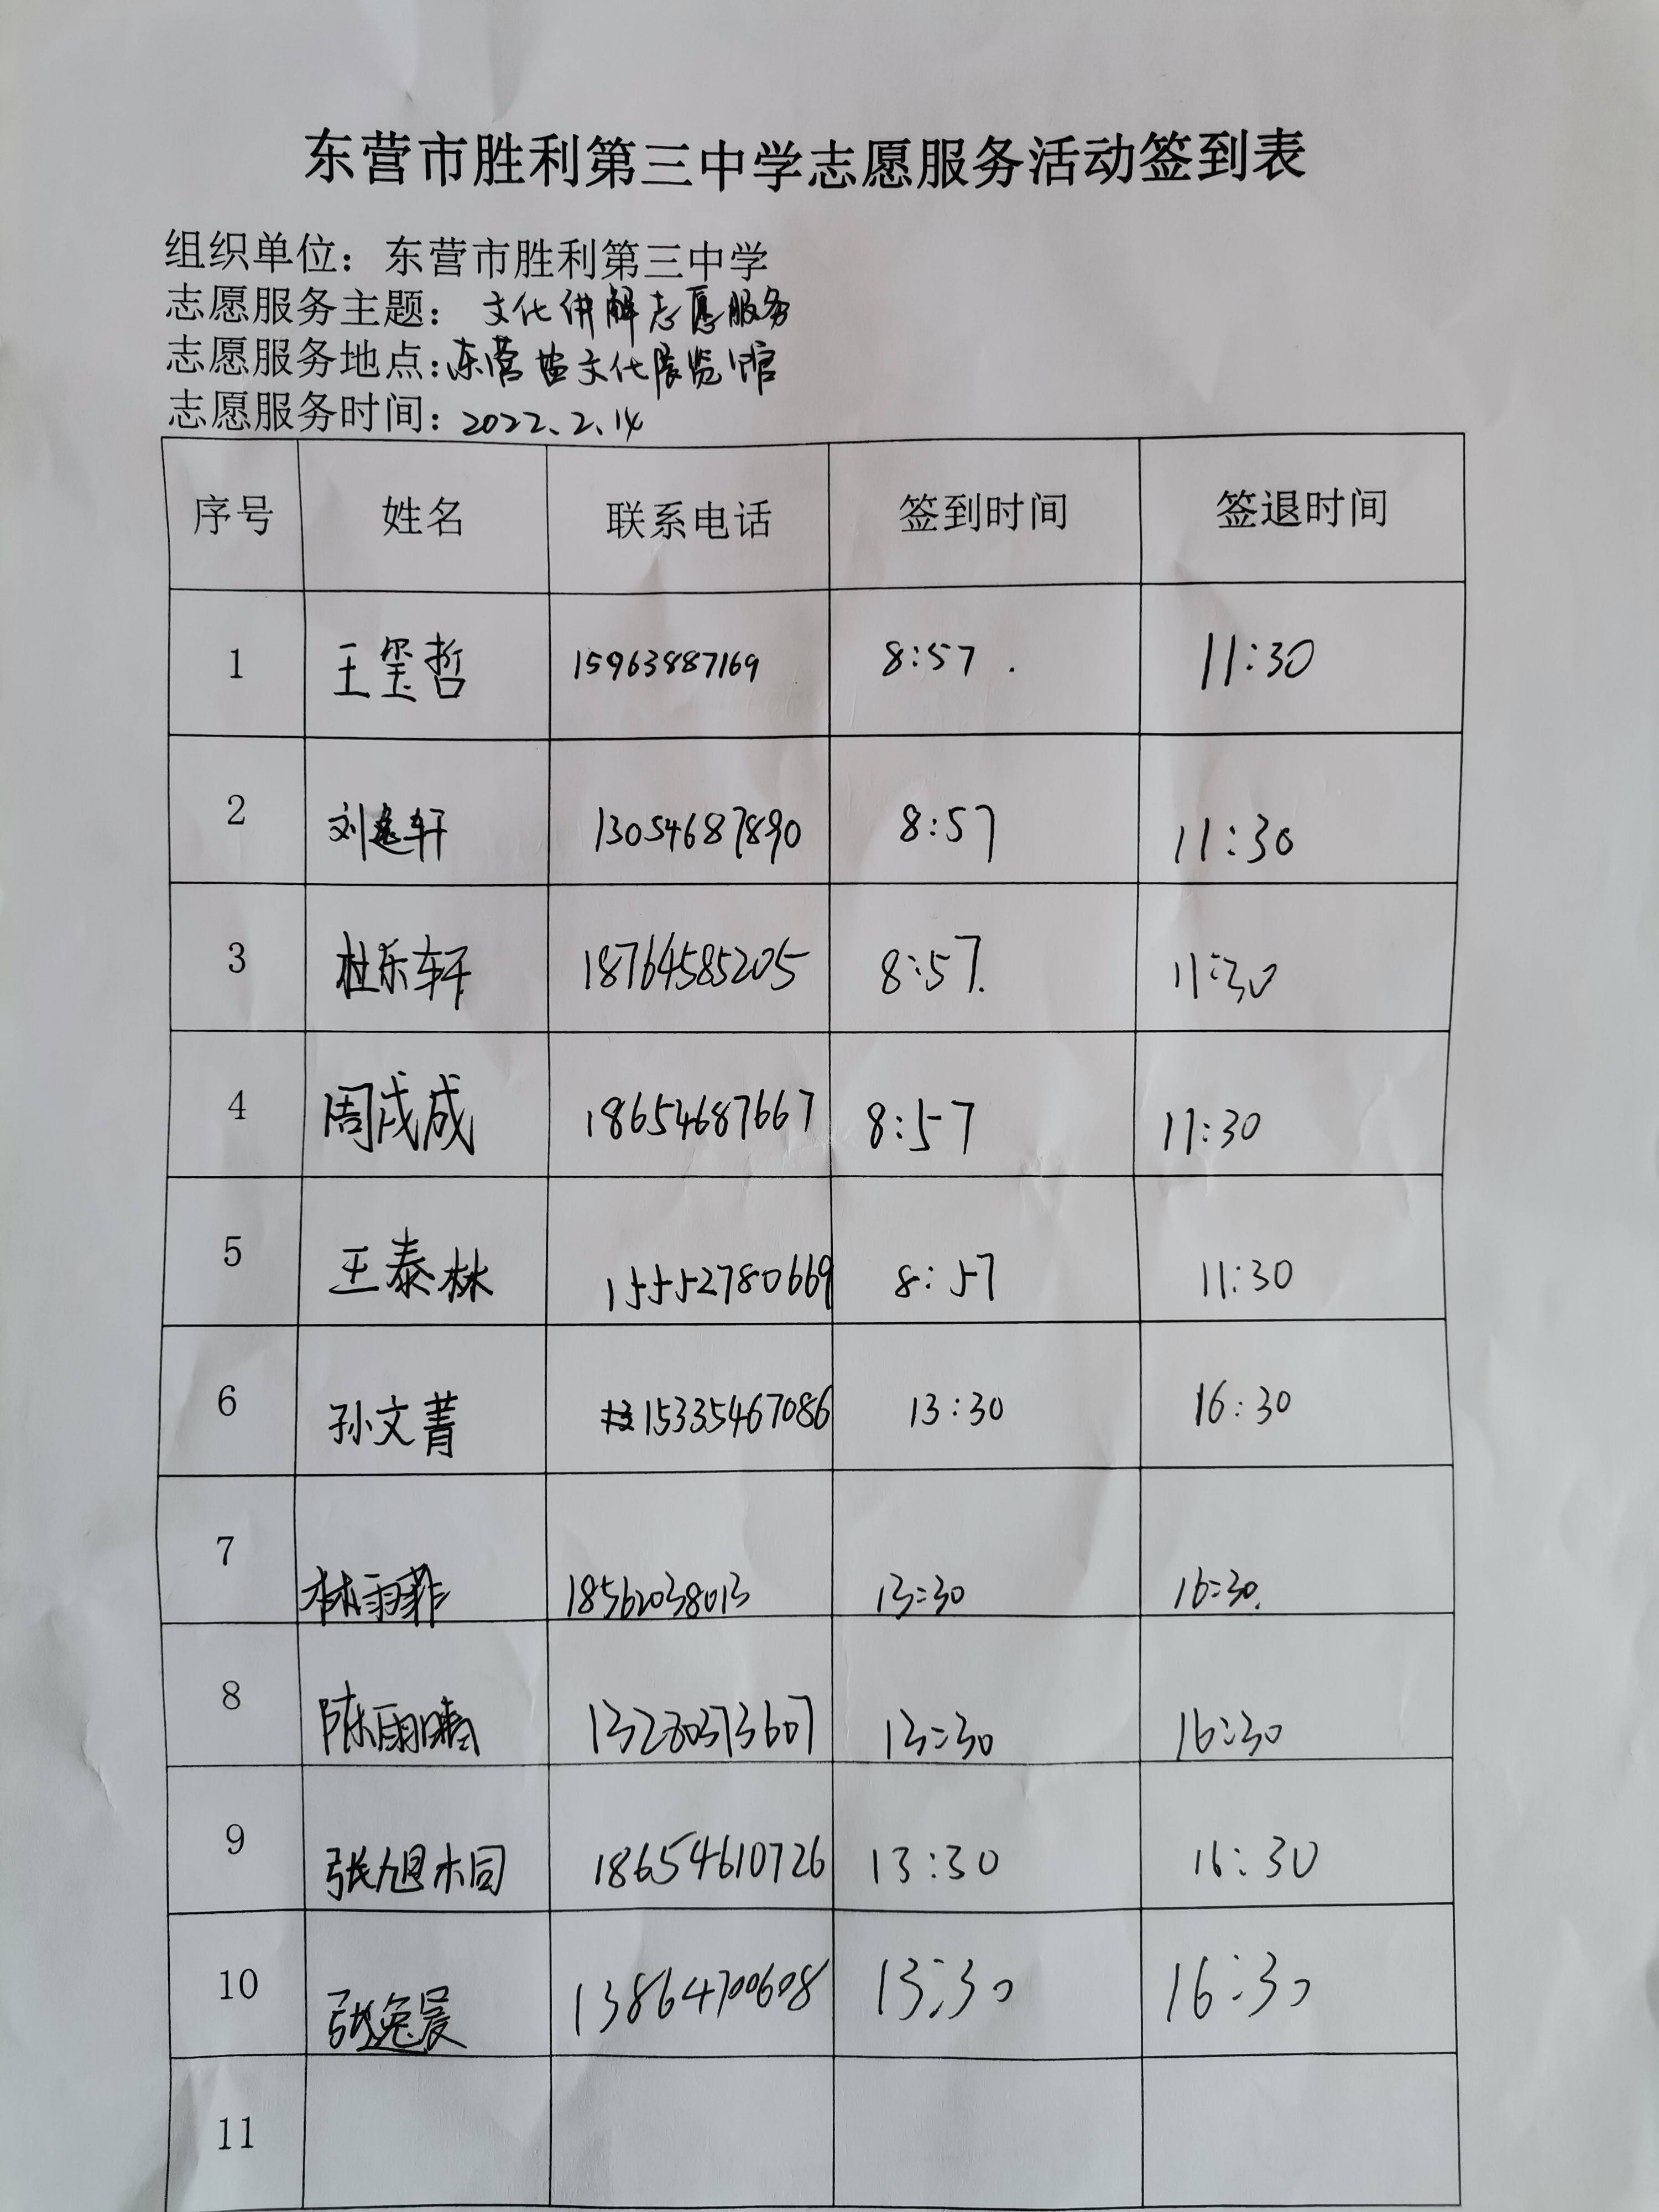 东营市胜利第三中学志愿服务活动签到表
组织单位：东营市胜利第三中学
志愿服务主题：文化讲解志愿服务
志愿服务地点：东营盐文化展览馆
志愿服务时间：2022、2、14
序号 姓名 联系电话 签到时间 签退时间
1 王玺哲 15963887169 8:57 . 11:30
2 刘逸轩 13054687890 8:57 11:30
3 杜乐轩 18764585205 8:57. 11:30
4 周成 18654687667 8:57 11:30
5 王泰林 15552780669 8:57 11:30
6 孙文菁 15335467086 13:30 16:30
7 林雨菲 18562038013 13:30 16:30.
8 陈雨晴 13280373607 13:30 16:30
9 张旭桐 18654610726 13:30 16:30
10 张 13864700608 13:30 16:30
11